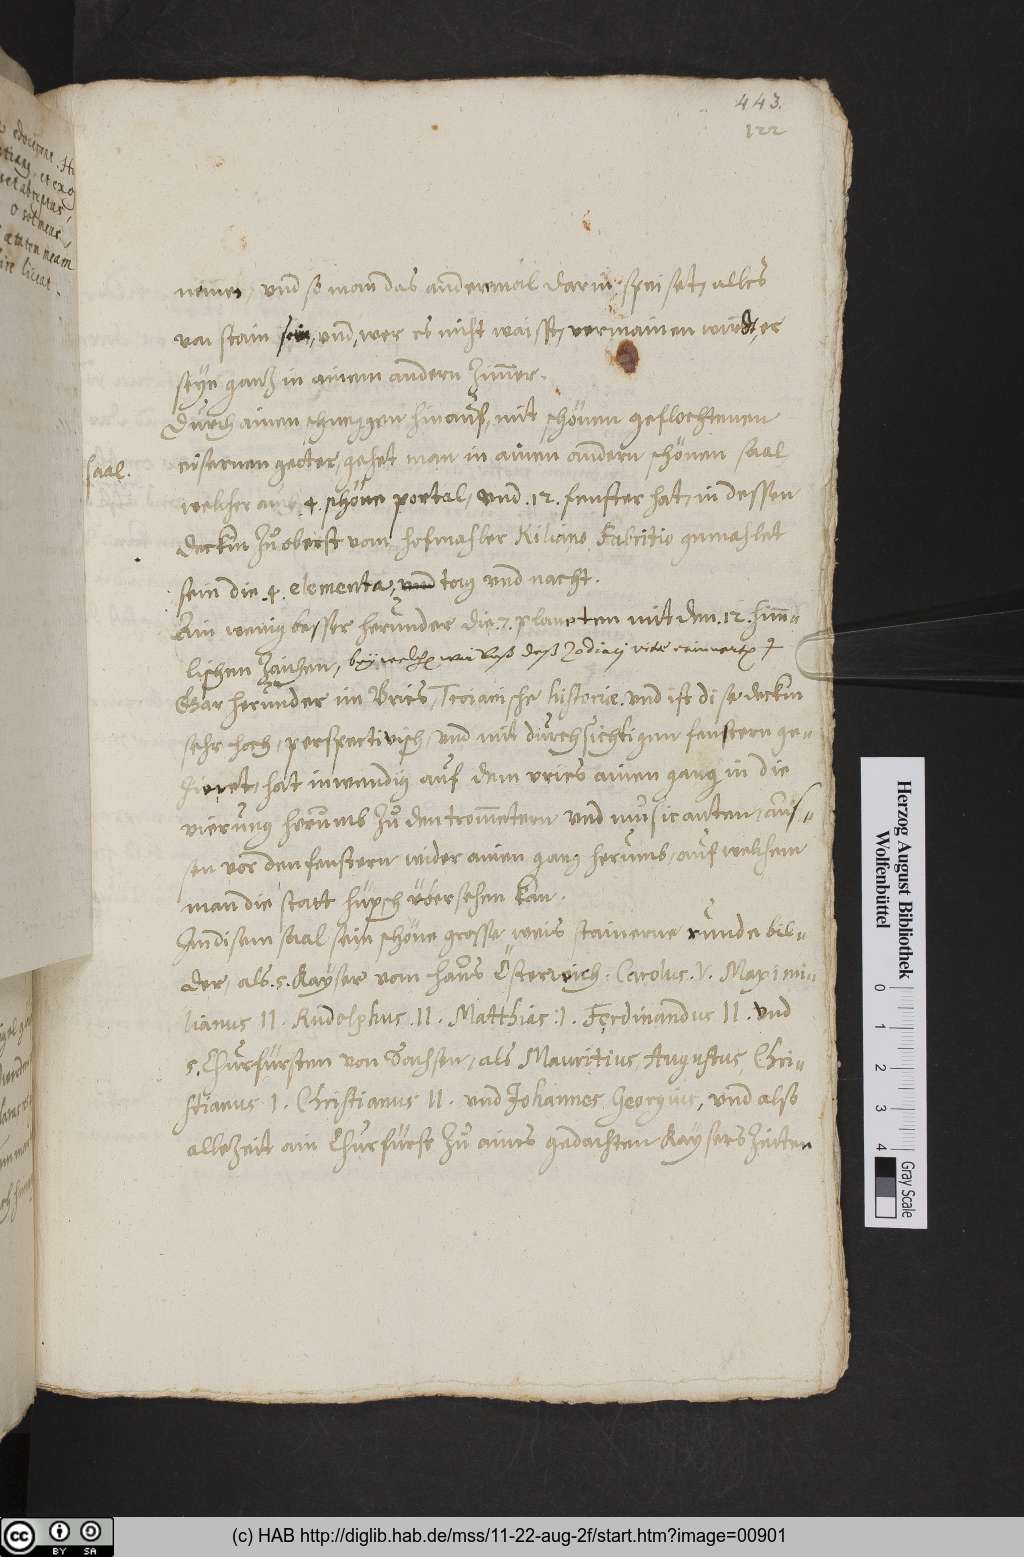 443.
122
nemen, vnd so man das anderemal darin speiset, alles
von stain sein, vnd, wer es nicht waisst, vermainen wirdt, er
seye gantz in ainem andern Zimmer.
Durch ainen schneggen hinauf, mit schönen geflochtenen
eisernen gecter, gehet man in ainen andern schönen saal
saal.
welcher auch 4. schöne portal, vnd .12. fenster hat, in dessen
deckin zu oberst vom hofmahler Kiliano Fabritio gemahlet
sein die .4. elementa, vnd tag vnd nacht.
Ain wenig besser herunder die .7. planeten mit den .12. himm-
lischen Zaichen,
Gar herunder im Bries, Troianische historie. vnd ist dise deckin
sehr hoch, perspectivisch, vnd mit durchsichtigen fenstern ge-
Zieret, hat inwendig auf dem vries ainen gang in die
vierung herumb zu den trommetern vnd musicanten, aus-
sen vor den fenstern wider ainen gang herumb, auf welchem
man die statt hüpsch übersehen kan.
In disem saal sein schöne grosse weis stainerne runde bil-
der, als .5. Kayser vom haus Österreich. Carolus. V. Maximi-
lianus II. Rudolphus. II. Matthias. I. Ferdinandus II. vnd
5. Churfürsten von Sachsen, als Mauritius, Augustus, Chri-
stianus. I. Christianus II. vnd Johannes Georgius, vnd also
allezeit ain Churfürst Zu aines gedachten Kaysers Zeiten
Herzog August Bibliothek
Wolfenbüttel
0 1 2 3 4
Gray Scale
cc BY SA
(c) HAB http://diglib.hab.de/mss/11-22-aug-2f/start.htm?image=00901